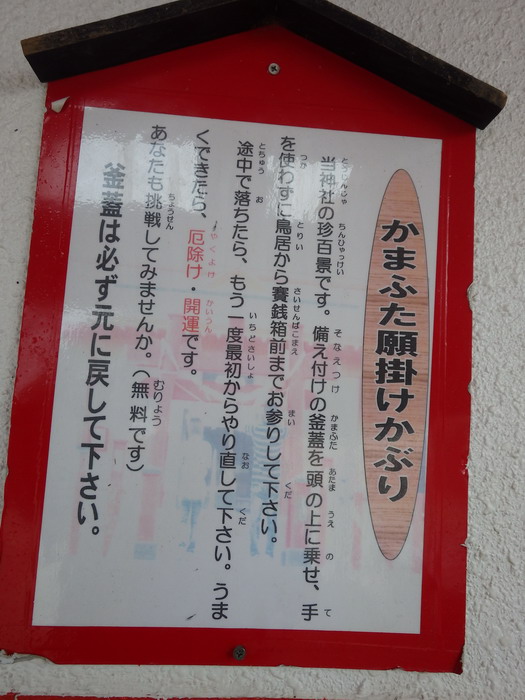 かまふた願掛けかぶり
当神社の珍百景です。備え付けの釜蓋を頭の上に乗せ、手
を使わずに鳥居から賽銭箱前までお参りして下さい。
途中で落ちたら、もう一度最初からやり直して下さい。うま
くできたら、厄除け・開運です。
あなたも挑戦してみませんか。（無料です）
釜蓋は必ず元に戻して下さい。